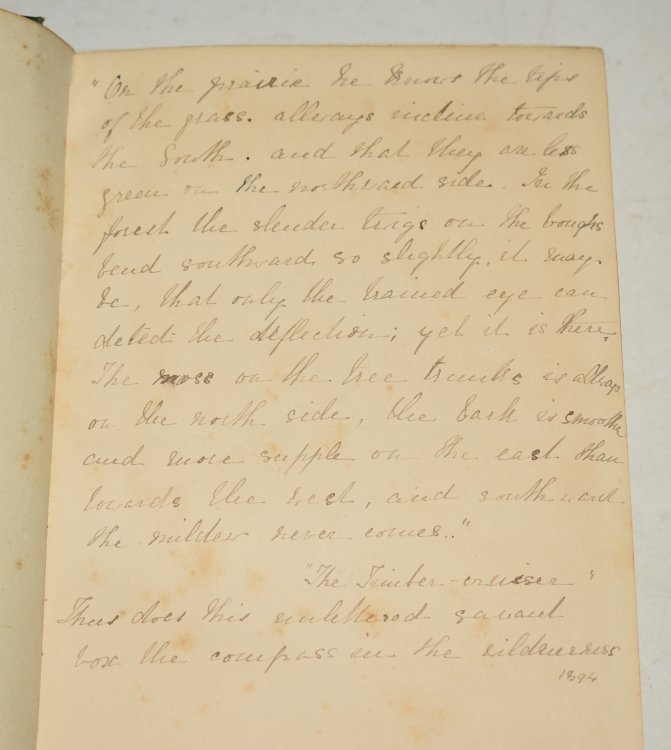 "On the prairie he knows the tips
of the grass. allways incline towards
the South. and that they are less
green on the northward side. In the
forest the slender twigs on the boughs
bend southward so slightly, it may-
be, that only the trained eye can
detect the deflection; yet it is there.
The moss on the tree trunks is allways
on the north side, the bark is smoother
and more supple on the east than
towards the west, and southward
the mildew never comes."
"The Timber-cruiser"
Thus does this unlettered savant
box the compass in the wilderness
1894